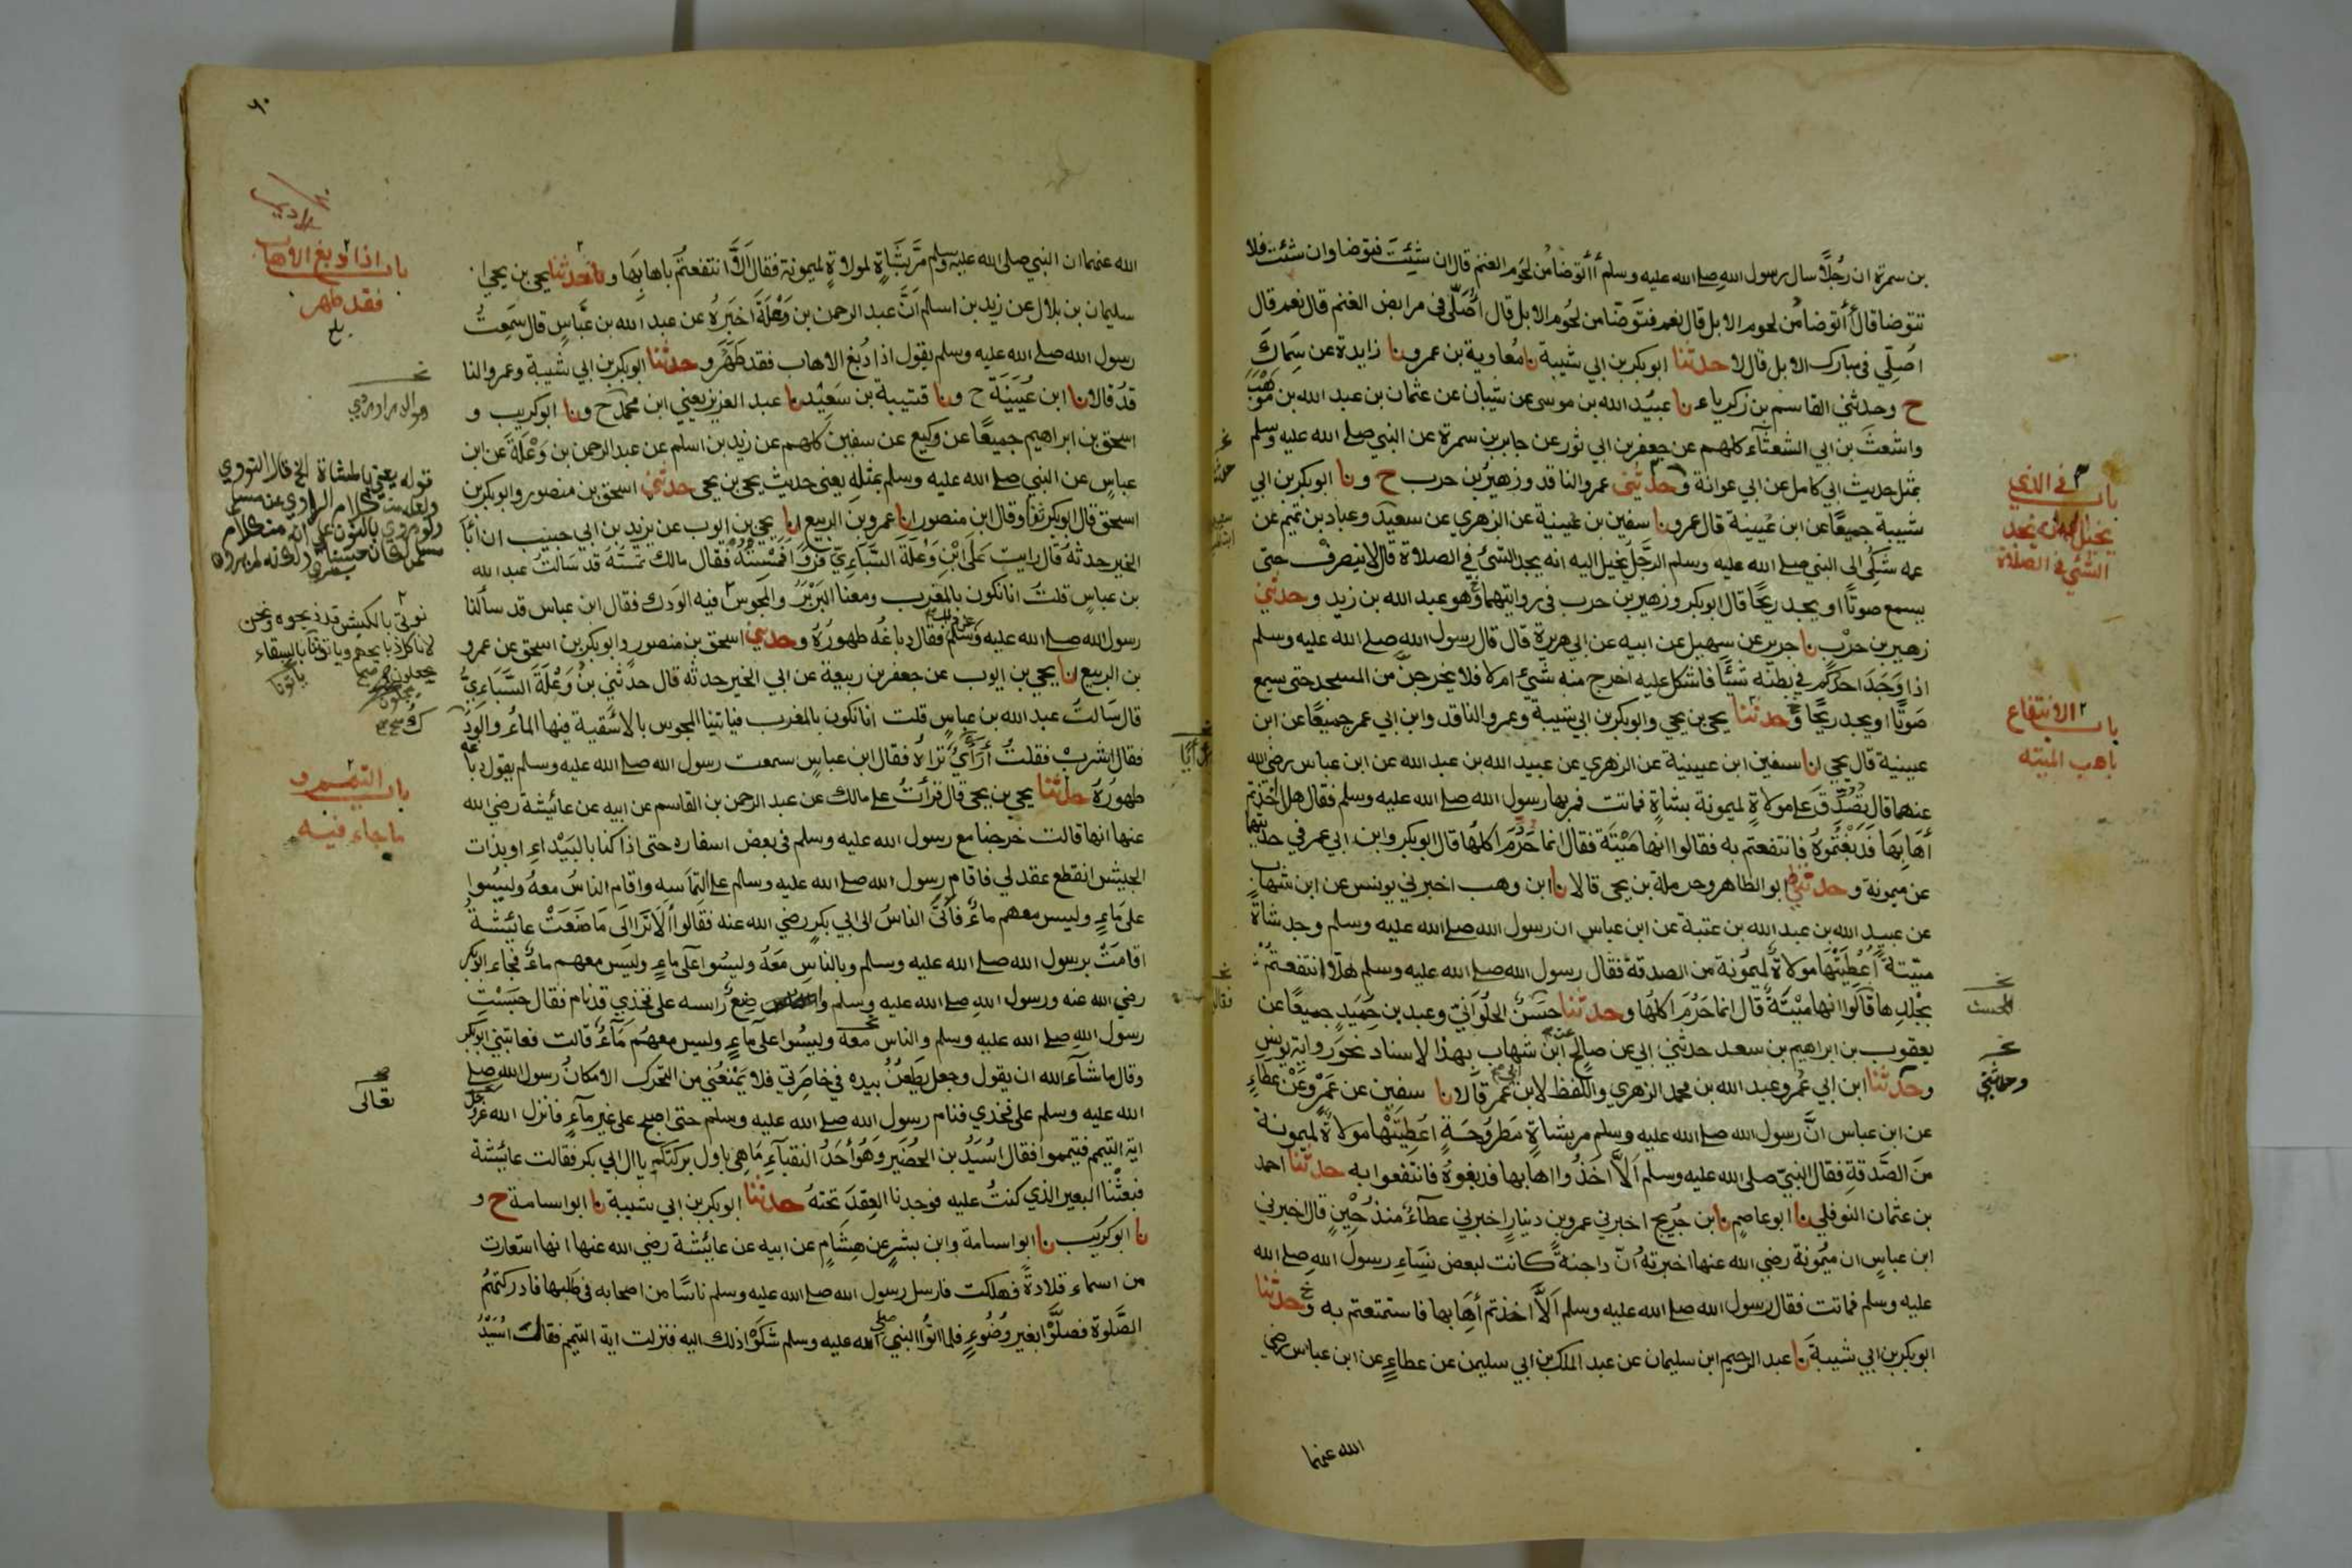 بن سمرة ان رجلا سال رسول الله صلى الله عليه وسلم أأتوضأ من لحوم الغنم قال ان شئت فتوضا وان شئت فلا
تتوضا قال أأتوضأ من لحوم الابل قال نعم فتوضا من لحوم الابل قال أصلي في مرابض الغنم قال نعم قال
اصلي في مبارك الابل قال لا حدثنا ابو بكر بن ابي شيبة نا معاوية بن عمرو نا زايدة عن سماك
ح وحدثني القاسم بن زكرياء نا عبيد الله بن موسى عن شيبان عن عثمان بن عبد الله بن موهب
واشعث بن ابي الشعثاء كلهم عن جعفر بن ابي ثور عن جابر بن سمرة عن النبي صلى الله عليه وسلم
بمثل حديث ابي كامل عن ابي عوانة وحدثني عمرو الناقد وزهير بن حرب ح ونا ابو بكر بن ابي
شيبة جميعا عن ابن عيينة قال عمرو نا سفين بن عيينة عن الزهري عن سعيد وعباد بن تميم عن
عمه شكي الى النبي صلى الله عليه وسلم الرجل يخيل اليه انه يجد الشئ في الصلاة قال لا ينصرف حتى
يسمع صوتا او يجد ريحا قال ابو بكر وزهير بن حرب في روايتهما وهو عبد الله بن زيد وحدثني
زهير بن حرب نا جرير عن سهيل عن ابيه عن ابي هريرة قال قال رسول الله صلى الله عليه وسلم
اذا وجد احدكم في بطنه شيئا فاشكل عليه اخرج منه شيئ ام لا فلا يخرجن من المسجد حتى يسمع
صوتا او يجد ريحا وحدثنا يحيى بن يحيى وابو بكر بن ابي شيبة وعمرو الناقد وابن ابي عمر جميعا عن ابن
عيينة قال يحيى انا سفين ابن عيينة عن الزهري عن عبيد الله بن عبد الله عن ابن عباس رضي الله
عنهما قال تصدق على مولاة لميمونة بشاة فماتت فمر بها رسول الله صلى الله عليه وسلم فقال هلا اخذتم
أهابها فدبغتموه فانتفعتم به فقالوا انها ميتة فقال انما حرم اكلها قال ابو بكر وابن ابي عمر في حديثهما
عن ميمونة وحدثني ابو الطاهر وحرملة بن يحيى قالا نا ابن وهب اخبرني يونس عن ابن شهاب
عن عبيد الله بن عبد الله بن عتبة عن ابن عباس ان رسول الله صلى الله عليه وسلم وجد شاة
ميتة أعطيتها مولاة لميمونة من الصدقة فقال رسول الله صلى الله عليه وسلم هلا انتفعتم
بجلدها قالوا انها ميتة قال انما حرم اكلها وحدثنا حسن الحلواني وعبد بن حميد جميعا عن
يعقوب بن ابراهيم بن سعد حدثني ابي عن صالح عن ابن شهاب بهذا لاسناد نحو رواية يونس
وحدثنا ابن ابي عمر وعبد الله بن محمد الزهري واللفظ لابن ابي عمر قالا نا سفين عن عمرو عن عطاء
عن ابن عباس ان رسول الله صلى الله عليه وسلم مر بشاة مطروحة اعطيتها مولاة لميمونة
من الصدقة فقال النبي صلى الله عليه وسلم الا اخذوا اهابها فدبغوه فانتفعوا به حدثنا احمد
بن عثمان النوفلي نا ابو عاصم نا ابن جريج اخبرني عمرو بن دينار اخبرني عطاء منذ حين قال اخبرني
ابن عباس ان ميمونة رضي الله عنها اخبرته ان داجنة كانت لبعض نساء رسول الله صلى الله
عليه وسلم فماتت فقال رسول الله صلى الله عليه وسلم الا اخذتم أهابها فاستمتعتم به وحدثنا
ابو بكر بن ابي شيبة نا عبد الرحيم ابن سليمان عن عبد الملك بن ابي سليمن عن عطاء عن ابن عباس رضي
الله عنهما
باب في الذي
يخيل اليه انه يجد
الشئ في الصلاة
باب الانتفاع
باهب الميتة
الحسن
وحدثني
٦٠
الله عنهما ان النبي صلى الله عليه وسلم مر بشاة لمولاة لميمونة فقال الا انتفعتم باهابها وحدثنا يحيى بن يحيى انا
سليمان بن بلال عن زيد بن اسلم ان عبد الرحمن بن وعلة اخبره عن عبد الله بن عباس قال سمعت
رسول الله صلى الله عليه وسلم يقول اذا دبغ الاهاب فقد طهر وحدثنا ابو بكر بن ابي شيبة وعمرو النا
قد قالا نا ابن عيينة ح ونا قتيبة بن سعيد نا عبد العزيز يعني ابن محمد ح ونا ابو كريب و
اسحق بن ابراهيم جميعا عن وكيع عن سفين كلهم عن زيد بن اسلم عن عبد الرحمن بن وعلة عن ابن
عباس عن النبي صلى الله عليه وسلم بمثله يعني حديث يحيى بن يحيى حدثني اسحق بن منصور وابو بكر بن
اسحق قال ابو بكر نا وقال ابن منصور انا عمرو بن الربيع انا يحيى بن ايوب عن يزيد بن ابي حبيب ان ابا
الخير حدثه قال رايت على ابن وعلة السباءي فروا فمسسته فقال مالك تمسه قد سالت عبد الله
بن عباس قلت انا نكون بالمغرب ومعنا البربر والمجوس
فيه الودك فقال ابن عباس قد سألنا
رسول الله صلى الله عليه وسلم عن ذلك فقال دباغه طهوره وحدثني اسحق بن منصور وابو بكر بن اسحق عن عمرو
بن الربيع انا يحيى بن ايوب عن جعفر بن ربيعة عن ابي الخير حدثه قال حدثني بن وعلة السباءي
قال سالت عبد الله بن عباس قلت انا نكون بالمغرب فياتينا المجوس بالاسقية فيها الماء والودك
فقال اشرب فقلت أرأي تراه فقال ابن عباس سمعت رسول الله صلى الله عليه وسلم يقول دباغه
طهوره حدثنا يحيى بن يحيى قال قرأت على مالك عن عبد الرحمن بن القاسم عن ابيه عن عائيشة رضي الله
عنها انها قالت خرجنا مع رسول الله صلى الله عليه وسلم في بعض اسفاره حتى اذا كنا بالبيداء او بذات
الجيش انقطع عقد لي فاقام رسول الله صلى الله عليه وسلم على التماسه واقام الناس معه وليسوا
على ماء وليس معهم ماء فأتى الناس الى ابي بكر رضي الله عنه فقالوا ألا ترا الى ما صنعت عائيشة
اقامت برسول الله صلى الله عليه وسلم وبالناس معه وليسوا على ماء وليس معهم ماء فجاء ابو بكر
رضي الله عنه ورسول الله صلى الله عليه وسلم واضع رأسه على فخذي قد نام فقال حبست
رسول الله صلى الله عليه وسلم والناس معه وليسوا على ماء وليس معهم ماء قالت فعاتبني ابو بكر
وقال ما شاء الله ان يقول وجعل يطعن بيده في خاصرتي فلا يمنعني من التحرك الا مكان رسول الله صلى
الله عليه وسلم على فخذي فنام رسول الله صلى الله عليه وسلم حتى اصبح على غير ماء فانزل الله عز وجل
اية التيمم فتيمموا فقال اسيد بن الحضير وهو أحد النقباء ما هي باول بركتكم يا ال ابي بكر فقالت عائيشة
فبعثنا البعير الذي كنت عليه فوجدنا العقد تحته حدثنا ابو بكر بن ابي شيبة نا ابو اسامة ح و
نا ابو كريب نا ابو اسامة وابن بشر عن هشام عن ابيه عن عائيشة رضي الله عنها انها استعارت
من اسماء قلادة فهلكت فارسل رسول الله صلى الله عليه وسلم ناسا من اصحابه في طلبها فادركتهم
الصلوة فصلوا بغير وضوء فلما اتوا النبي صلى الله عليه وسلم شكوا ذلك اليه فنزلت اية التيمم فقال اسيد
باب اذا دبغ الاهاب
فقد طهر
قوله يعني بالمثناة الخ قال النووي
نوتى بالكبش قد ذبحوه ونحن
لا ناكل ذبايحهم وياتوننا بالسقاء
باب التيمم و
ما جاء فيه
تعالى